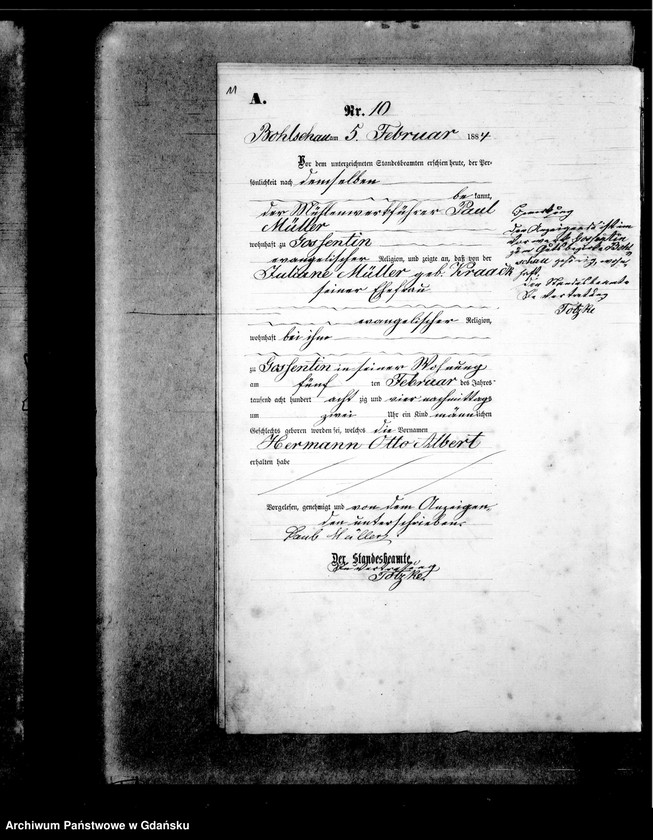 11
A.
Nr. 10
Bohlschau am 5. Februar 1884
Vor dem unterzeichneten Standesbeamten erschien heute, der Per-
sönlichkeit nach demselben
be kannt,
der Mühlenwerkführer Paul
Müller
wohnhaft zu Gossentin
evangelischer Religion, und zeigte an, daß von der
Juliane Müller geb. Kraack
seiner Ehefrau
evangelischer Religion,
wohnhaft bei ihm
zu Gossentin in seiner Wohnung
am fünf ten Februar des Jahres
tausend acht hundert acht zig und vier nachmittags
um zwei Uhr ein Kind männlichen
Geschlechts geboren worden sei, welches die Vornamen
Hermann Otto Albert
erhalten habe
Vorgelesen, genehmigt und von dem Anzeigen
den unterschrieben
Paul Müller
Der Standesbeamte.
In Vertretung
Totzke.
Bemerkung
Der Anzeigende ist im
Gossentin
zum Gutsbezirke Bohl
schau gehörig, wohn
haft.
Der Standesbeamte
In Vertretung
Totzke
Archiwum Państwowe w Gdańsku